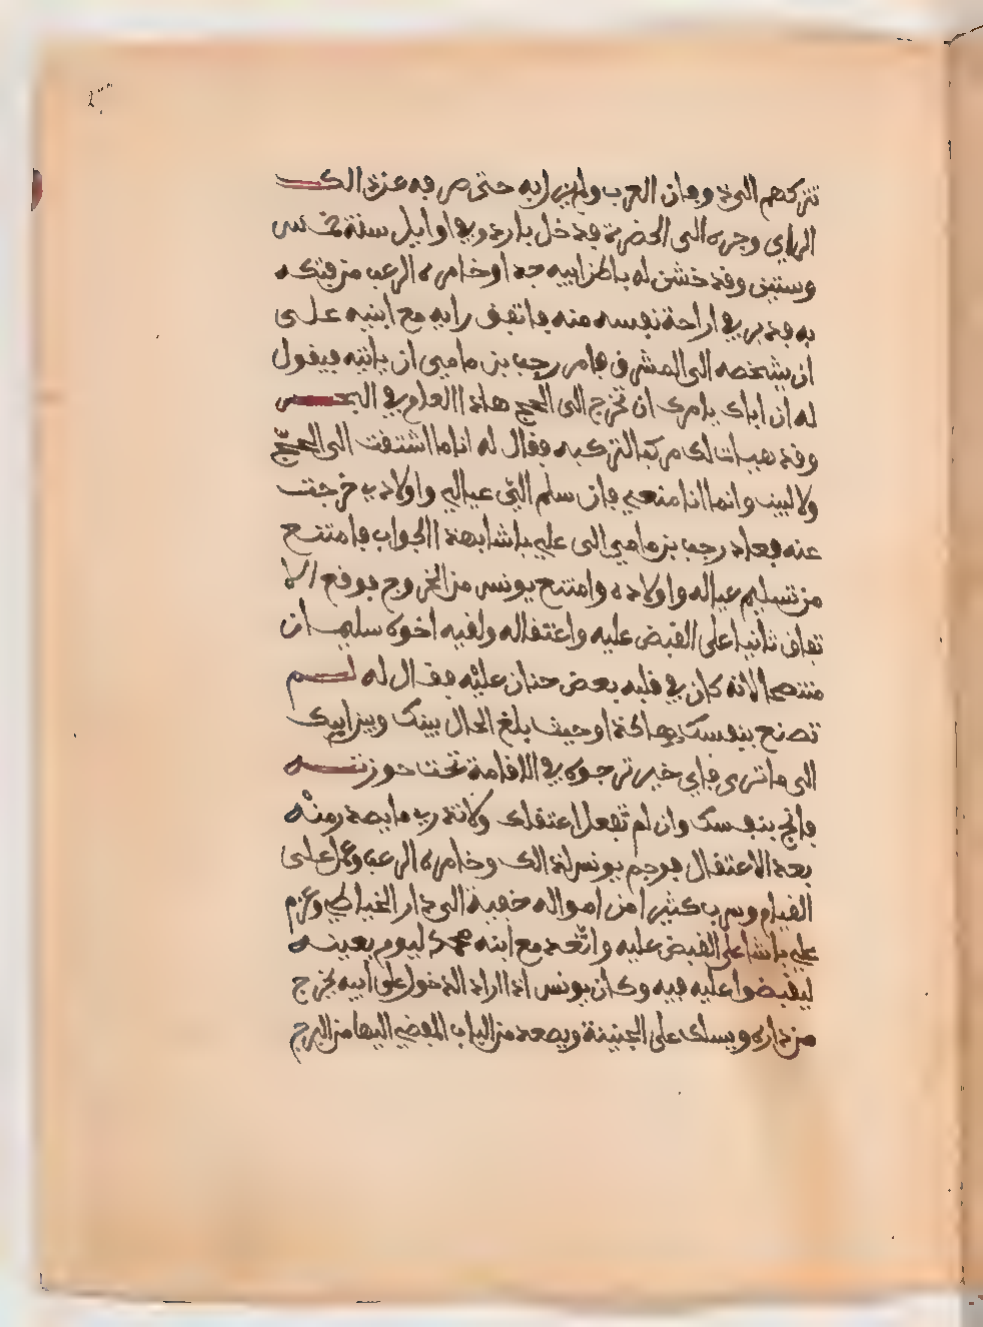 تتركهم الى وفاق العرب ولم يزل به حتى صرفه عن ذالك
الراي وجره الى الحضرة فدخل باردو في اوايل سنة خمس
وستين وقد خشن له باطن ابيه جدا وخامره الرعب من فتكه
به فدبر في اراحة نفسه منه فاتفق رايه مع ابنيه على
ان يشخصه الى المشرق فامر رجب بن مامي ان ياتيه فيقول
له ان اباك يامرك ان تخرج الى الحج هاذا العام في البحر
وقد هيات لك مركبا لتركبه فقال له انا ما اشتقت الى الحج
ولا لبيت وانما انا منعي فان سلم الي عيالي واولادي خرجت
عنه فعاد رجب بن مامي الى علي باشا بهذا الجواب فامتنع
من تسليم عياله واولاده وامتنع يونس من الخروج فوقع الا
تفاق ثانيا على القبض عليه واعتقاله ولقيه اخوه سليمان
منتصحا لانه كان في قلبه بعض حنان عليه فقال له لم
تصنع بنفسك هاكذا وحيث بلغ الحال بينك وبين ابيك
الى ما ترى فاي خير ترجوه في الاقامة تحت حوزته
فانج بنفسك وان لم تفعل اعتقلك ولا تدري ما يصدر منه
بعد الاعتقال فوجم يونس لذالك وخامره الرعب وعزم على
القيام وسرب كثيرا من امواله خفية الى دار الخياطي وعزم
علي باشا على القبض عليه واتعد مع ابنه محمد ليوم بعينه
ليقبضوا عليه فيه وكان يونس اذا اراد الدخول على ابيه يخرج
من داره ويسلك على الجنينة ويصعد من الباب المفضي اليها من البرج